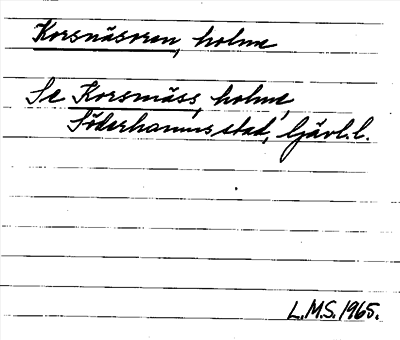 Korsnäsören, holme
Se Korsnäss, holme,
Söderhamns stad, Gävl.l.
L.M.S. 1965.